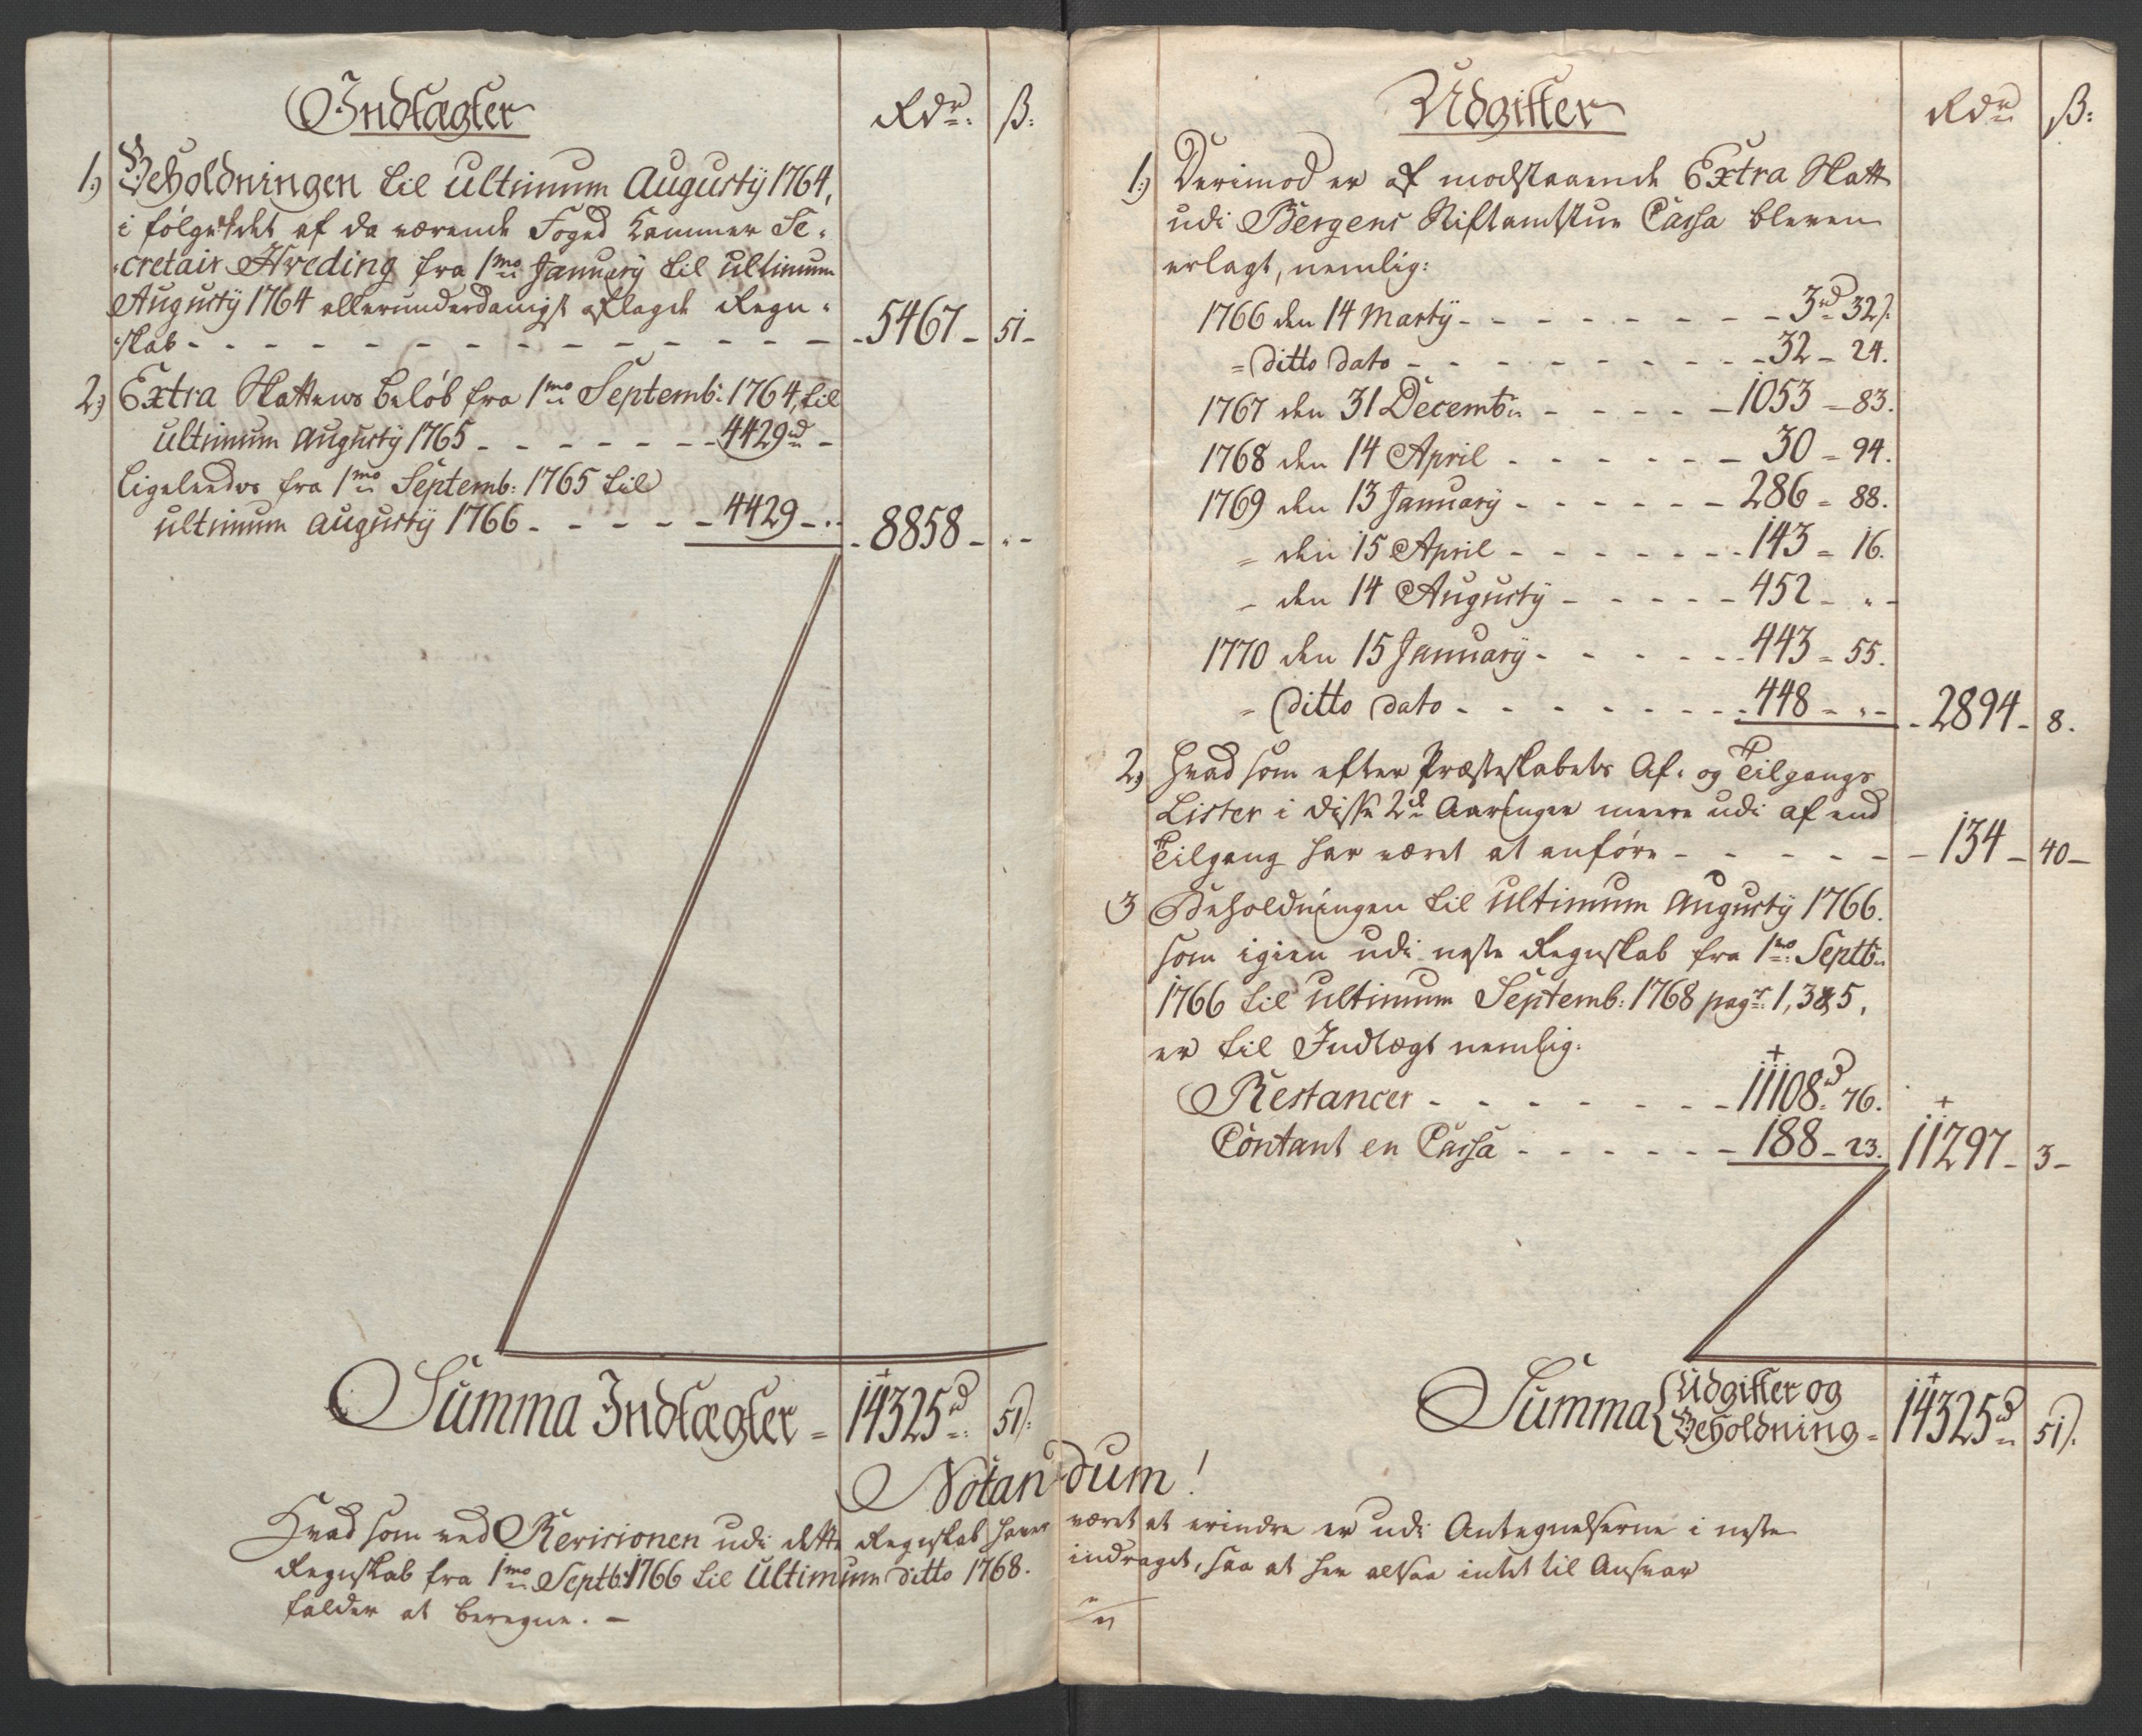 Indtægter
Rdr: ß:
1.) Beholdningen til ultimum Augustÿ 1764,
i følge det af da værende Foged Kammer Se-
cretair Hveding fra 1mo Januarÿ til ultimum
Augustÿ 1764 allerunderdanigst aflagde Regn-
skab - 5467 - 51 -
2.) Extra Skattens beløb fra 1mo Septemb: 1764, til
ultimum Augustÿ 1765 - 4429rd -
Ligeleedes fra 1mo Septemb: 1765 til
ultimum Augustÿ 1766 - 4429 - " - 8858 - " -
Summa Indtægter = 14325rd 51ß:
Udgifter
Rdr ß:
1.) Derimod er af modstaaende Extra Skatt
udi Bergens Stiftamtstue Cassa bleven
erlagt, nemlig:
1766 den 14 Martÿ - 3rd 32ß
= ditto dato - 32 - 24.
1767 den 31 Decembr - 1053 - 83.
1768 den 14 April - 30 - 94.
1769 den 13 Januarÿ - 286 - 88.
= den 15 April - 143 - 16.
- den 14 Augustÿ - 452 - " -
1770 den 15 Januarÿ - 443 - 55.
= ditto dato - 448 - " - 2894 - 8.
2.) Hvad som efter Præsteskabets Af- og Tilgangs
Lister i disse 2de Aaringer meere udi af end
Tilgang har været at anføre - 134 - 40 -
3 Beholdningen til ultimum Augustÿ 1766.
som igien udi neste Regnskab fra 1mo: Septbr
1766 til ultimum Septemb: 1768 pagr: 1, 3 & 5,
er til Indtægt nemlig:
Restancer - 11108rd 76.
Contant en Cassa - 188 - 23. 11297 - 3 -
Summa { Udgifter og
Beholdning = 14325rd 51ß.
Notandum!
Hvad som ved Revisionen udi dette Regnskab haver været at erindre er udi Antegnelserne i neste
Regnskab fra 1mo Septb: 1766 til Ultimum ditto 1768. inddraget, saa at her altsaa intet til Ansvar
falder at beregne. -